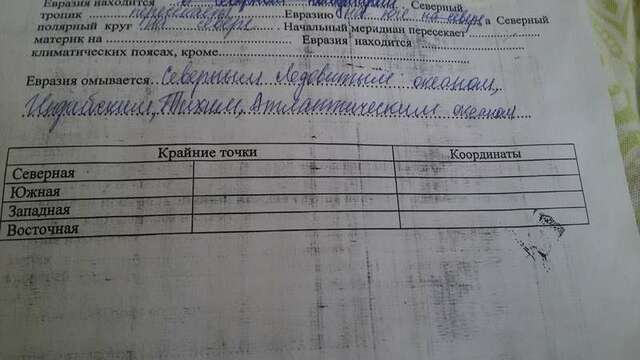 Евразия находится
Северный
тропик пересекает Евразию на юге на севере а Северный
полярный круг на севере. Начальный меридиан пересекает
материк на Евразия находится
климатических поясах, кроме
Евразия омывается Северным Ледовитым океаном,
Индийским, Тихим, Атлантическим океаном
Крайние точки Координаты
Северная
Южная
Западная
Восточная